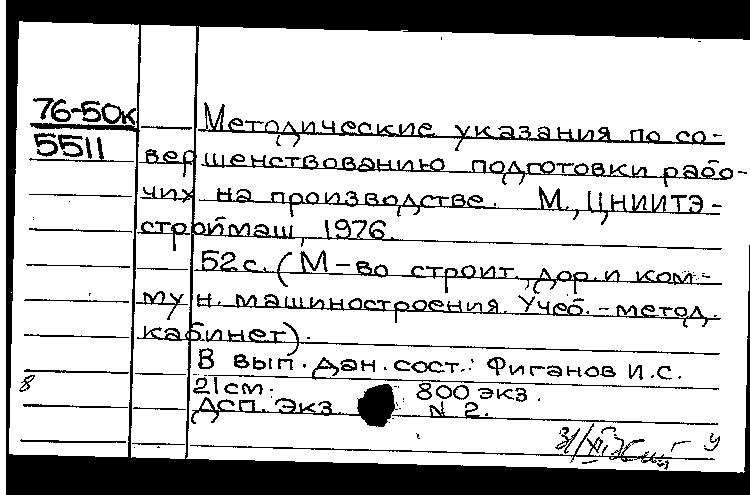 76-50к
5511
Методические указания по со-
вершенствованию подготовки рабо-
чих на производстве. М., ЦНИИТЭ-
строймаш, 1976.
52 с. (М-во строит., дор. и ком-
мун. машиностроения. Учеб.-метод.
кабинет).
В вып. дан. сост.: Фиганов И.С.
21 см. 800 экз.
ДСП. Экз N 2.
8